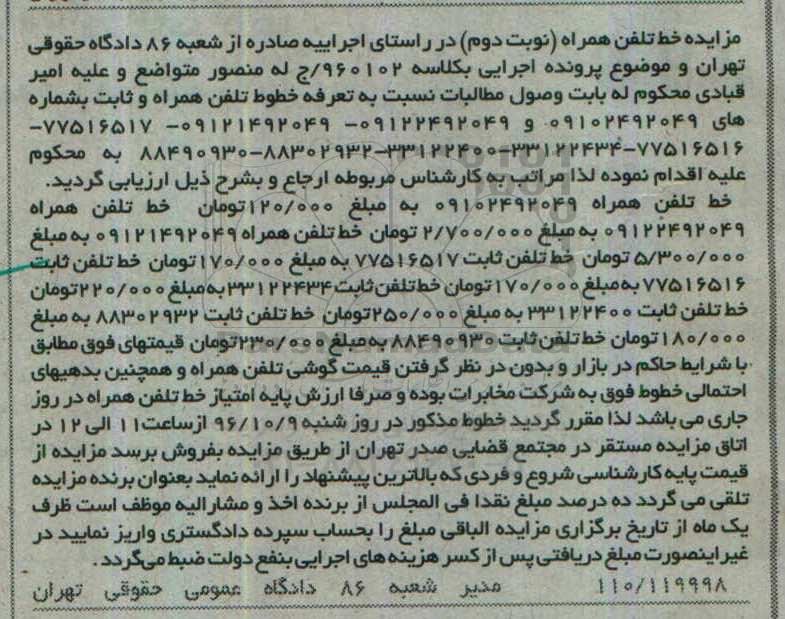 مزایده خط تلفن همراه (نوبت دوم) در راستای اجراییه صادره از شعبه ۸۶ دادگاه حقوقی
تهران و موضوع پرونده اجرایی بکلاسه ۹۶۰۱۰۲/ج له منصور متواضع و علیه امیر
قبادی محکوم له بابت وصول مطالبات نسبت به تعرفه خطوط تلفن همراه و ثابت بشماره
های ۰۹۱۰۲۴۹۲۰۴۹ و ۰۹۱۲۲۴۹۲۰۴۹- ۰۹۱۲۱۴۹۲۰۴۹- ۷۷۵۱۶۵۱۷-
۷۷۵۱۶۵۱۶-۳۳۱۲۲۴۳۴-۳۳۱۲۲۴۰۰-۸۸۳۰۲۹۳۲-۸۸۴۹۰۹۳۰ به محکوم
علیه اقدام نموده لذا مراتب به کارشناس مربوطه ارجاع و بشرح ذیل ارزیابی گردید.
خط تلفن همراه ۰۹۱۰۲۴۹۲۰۴۹ به مبلغ ۱۲۰/۰۰۰تومان خط تلفن همراه
۰۹۱۲۲۴۹۲۰۴۹ به مبلغ ۲/۷۰۰/۰۰۰ تومان خط تلفن همراه ۰۹۱۲۱۴۹۲۰۴۹ به مبلغ
۵/۳۰۰/۰۰۰ تومان خط تلفن ثابت ۷۷۵۱۶۵۱۷ به مبلغ ۱۷۰/۰۰۰تومان خط تلفن ثابت
۷۷۵۱۶۵۱۶ به مبلغ ۱۷۰/۰۰۰تومان خط تلفن ثابت ۳۳۱۲۲۴۳۴ به مبلغ ۲۲۰/۰۰۰تومان
خط تلفن ثابت ۳۳۱۲۲۴۰۰ به مبلغ ۲۵۰/۰۰۰تومان خط تلفن ثابت ۸۸۳۰۲۹۳۲ به مبلغ
۱۸۰/۰۰۰تومان خط تلفن ثابت ۸۸۴۹۰۹۳۰ به مبلغ ۲۳۰/۰۰۰تومان قیمتهای فوق مطابق
با شرایط حاکم در بازار و بدون در نظر گرفتن قیمت گوشی تلفن همراه و همچنین بدهیهای
احتمالی خطوط فوق به شرکت مخابرات بوده و صرفا ارزش پایه امتیاز خط تلفن همراه در روز
جاری می باشد لذا مقرر گردید خطوط مذکور در روز شنبه ۹۶/۱۰/۹ ازساعت۱۱ الی ۱۲ در
اتاق مزایده مستقر در مجتمع قضایی صدر تهران از طریق مزایده بفروش برسد مزایده از
قیمت پایه کارشناسی شروع و فردی که بالاترین پیشنهاد را ارائه نماید بعنوان برنده مزایده
تلقی می گردد ده درصد مبلغ نقدا فی المجلس از برنده اخذ و مشارالیه موظف است ظرف
یک ماه از تاریخ برگزاری مزایده الباقی مبلغ را بحساب سپرده دادگستری واریز نمایید در
غیر اینصورت مبلغ دریافتی پس از کسر هزینه های اجرایی بنفع دولت ضبط می‌گردد.
۱۱۰/۱۱۹۹۹۸ مدیر شعبه ۸۶ دادگاه عمومی حقوقی تهران